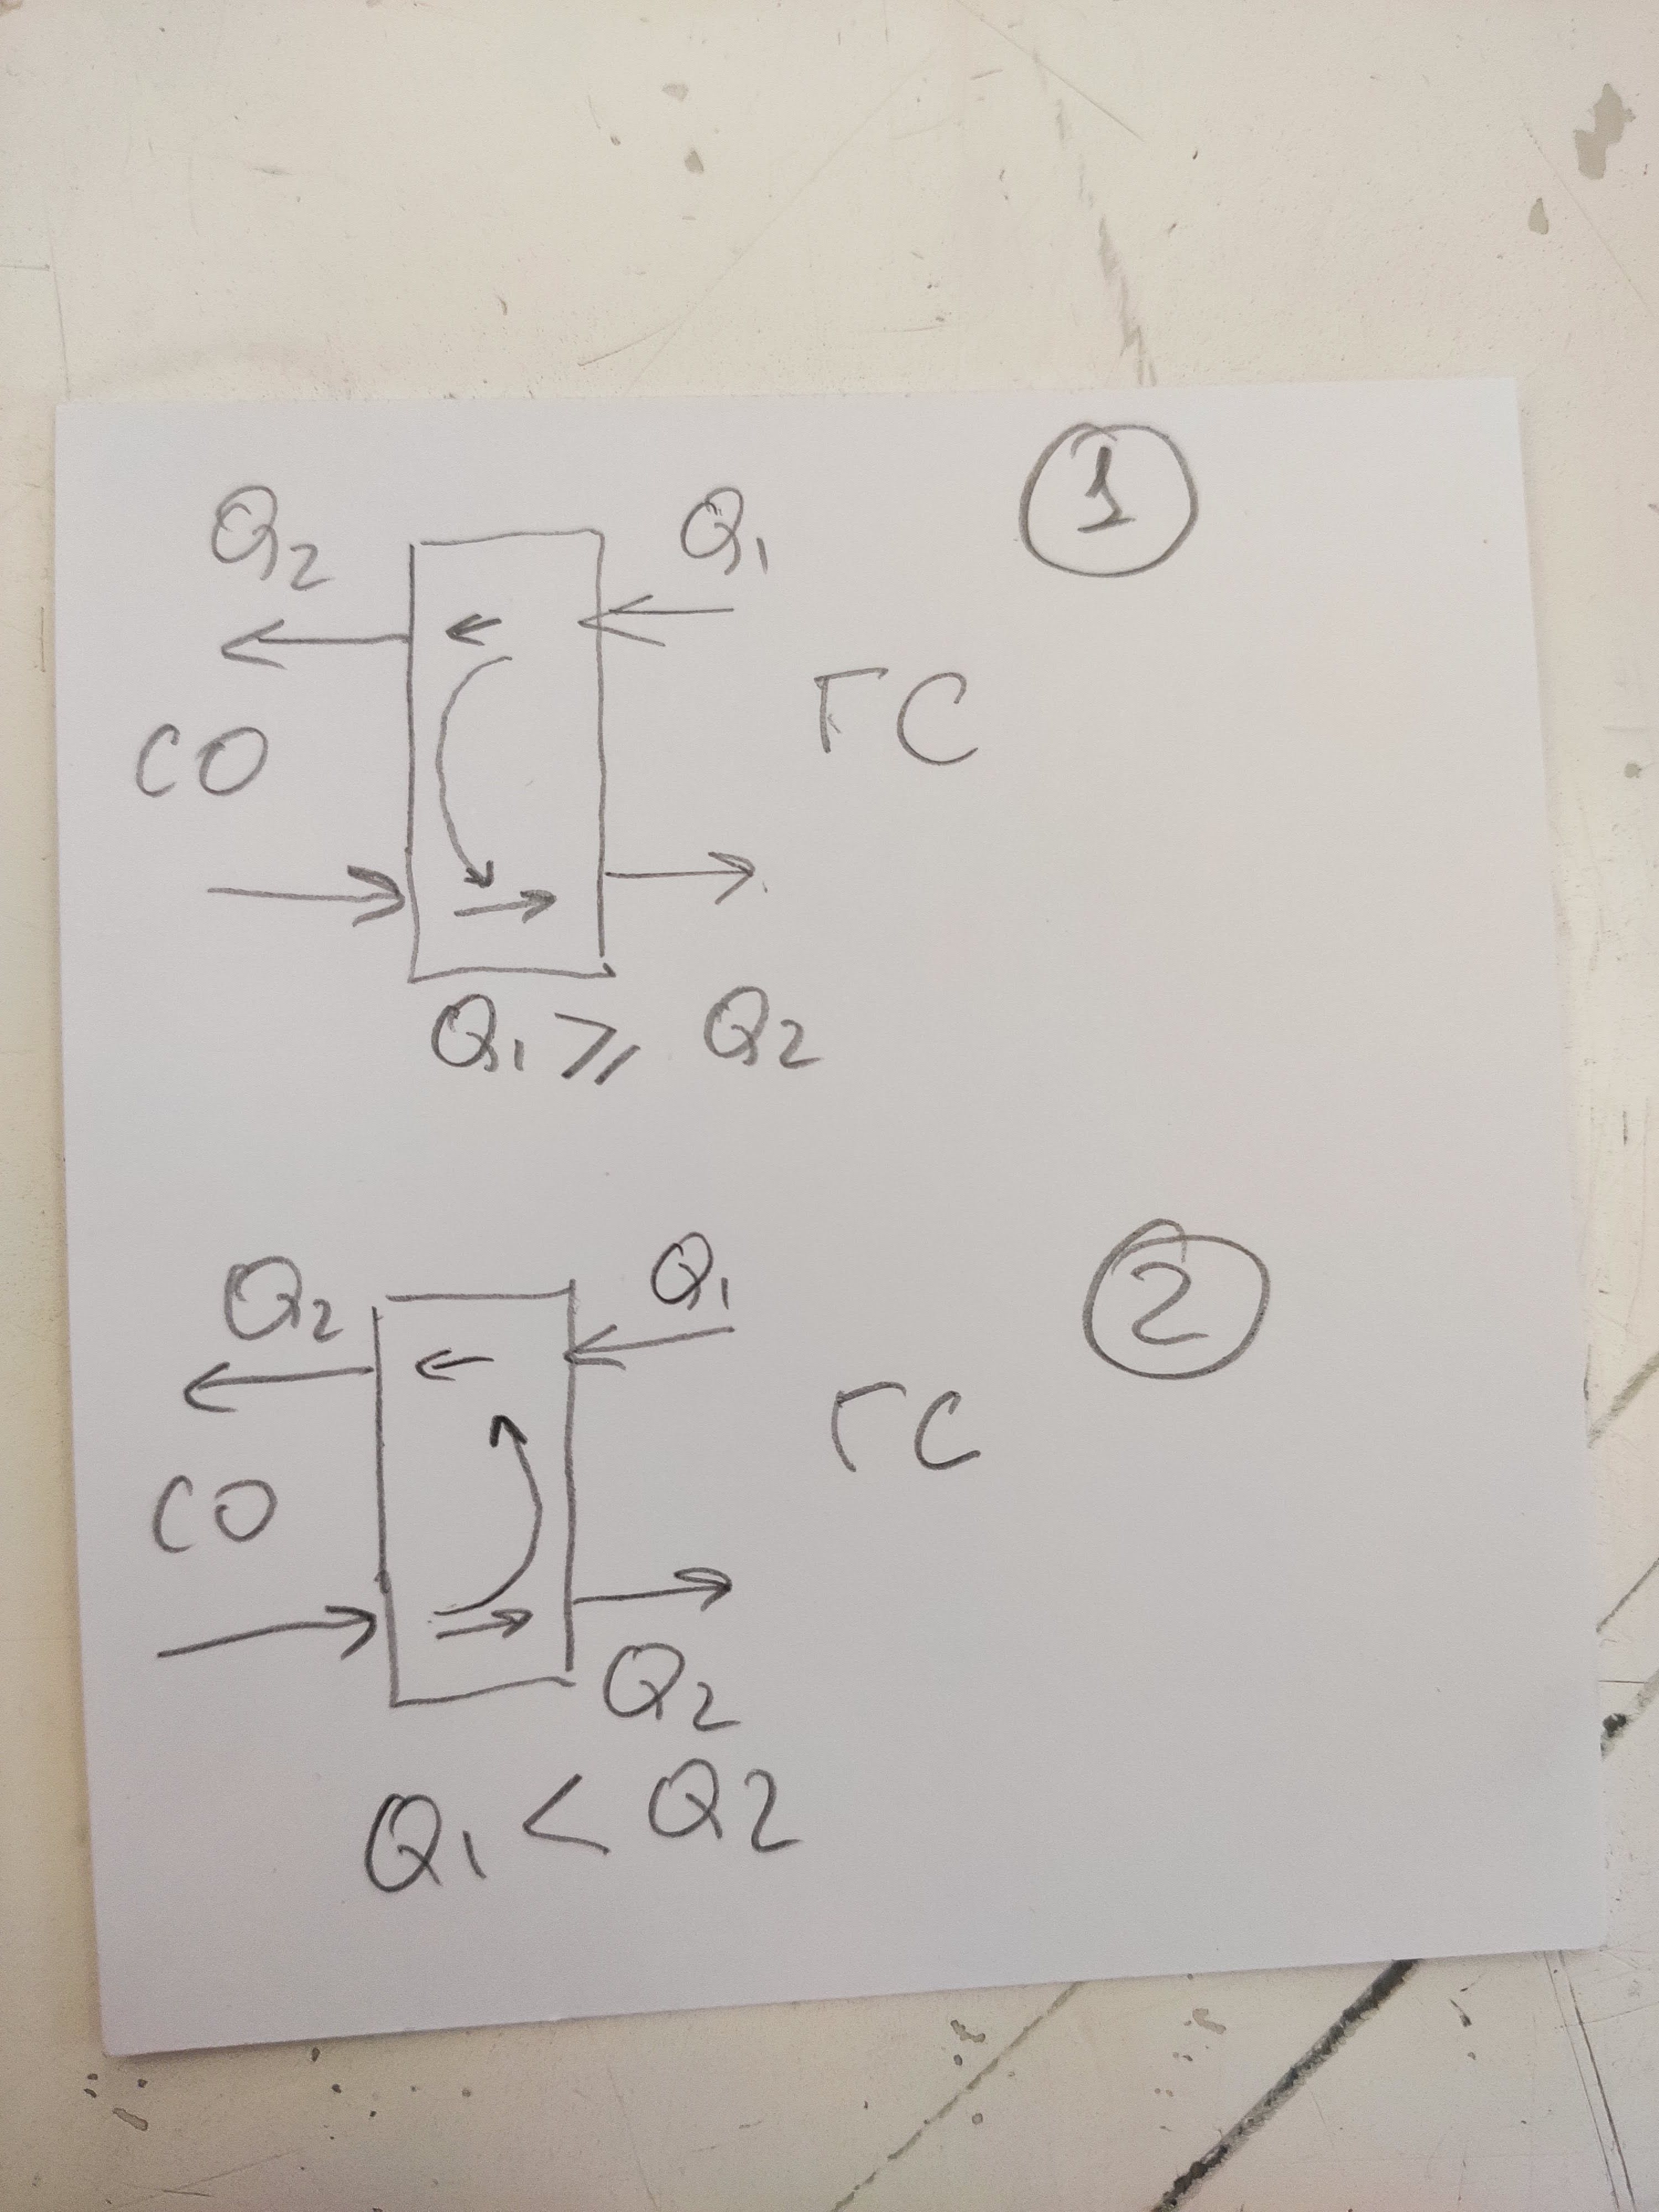 1
Q₂ Q₁
CO ГС
Q₁ ⩾ Q₂
2
Q₂ Q₁
CO ГС
Q₂
Q₁ < Q2